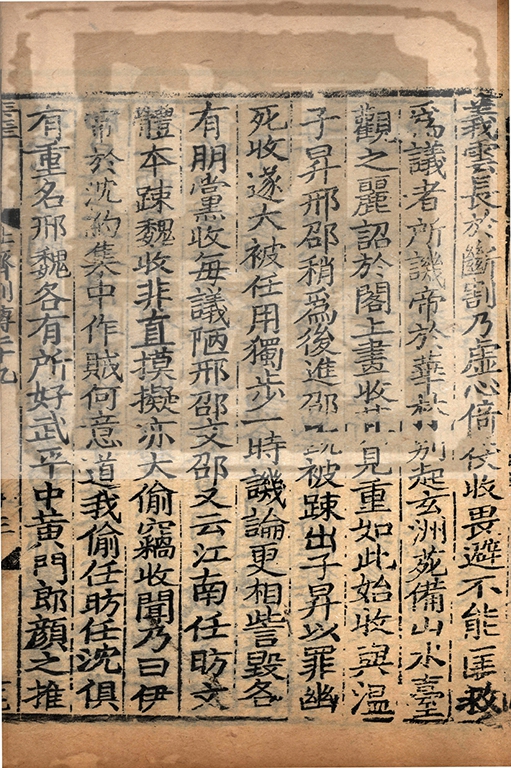 義雲長於斷割乃虛心倚 收畏避不能匡救
爲議者所譏帝於華林別起玄洲苑備山水臺
觀之麗詔於閣上畫收其見重如此始收與溫
子昇邢邵稍爲後進邵既被踈出子昇以罪幽
死收遂大被任用獨步一時議論更相訾毀各
有朋黨收每議陋邢邵文邵又云江南任昉文
體本踈魏收非直摸擬亦大偷竊收聞乃曰伊
常於沈約集中作賊何意道我偷任昉任沈俱
有重名邢魏各有所好武平中黄門郎顔之推
北齊列傳二十九